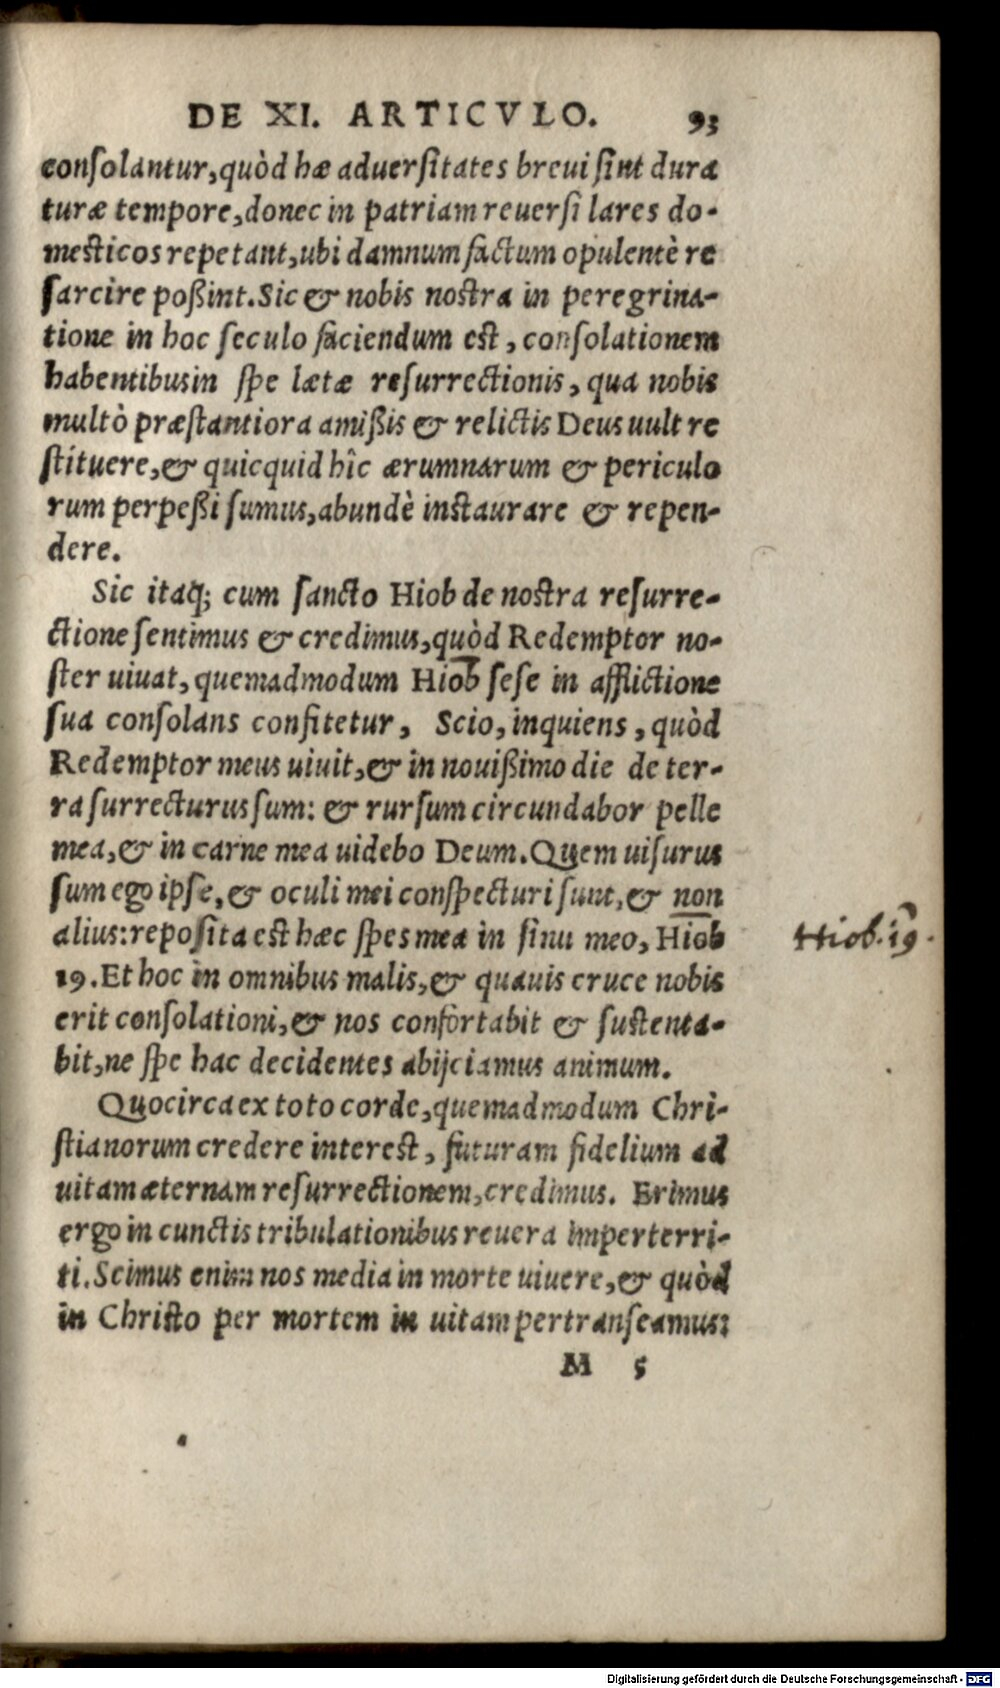 DE XI. ARTICVLO. 93
conſolantur,quòd hæ aduerſitates breui ſint dura
turæ tempore,donec in patriam reuerſi lares do-
meſticos repetant,ubi damnum factum opulentè re
ſarcire poßint.Sic & nobis noſtra in peregrina-
tione in hoc ſeculo faciendum eſt, conſolationem
habentibus in ſpe lætæ reſurrectionis, qua nobis
multò præſtantiora amißis & relictis Deus uult re
ſtituere,& quicquid hîc ærumnarum & periculo
rum perpeßi ſumus,abundè inſtaurare & repen-
dere.
Sic itaq; cum ſancto Hiob de noſtra reſurre-
ctione ſentimus & credimus,quòd Redemptor no-
ſter uiuat, quemadmodum Hiob ſeſe in afflictione
ſua conſolans confitetur, Scio, inquiens, quòd
Redemptor meus uiuit,& in nouißimo die de ter-
ra ſurrecturus ſum: & rurſum circundabor pelle
mea,& in carne mea uidebo Deum.Quem uiſurus
ſum ego ipſe,& oculi mei conſpecturi ſunt,& non
alius:repoſita eſt hæc ſpes mea in ſinu meo, Hiob
Hiob. 19.
19. Et hoc in omnibus malis,& quauis cruce nobis
erit conſolationi,& nos confortabit & ſuſtenta-
bit,ne ſpe hac decidentes abijciamus animum.
Quocirca ex toto corde,quemadmodum Chri-
ſtianorum credere intereſt, futuram fidelium ad
uitam æternam reſurrectionem,credimus. Erimus
ergo in cunctis tribulationibus reuera imperterri-
ti.Scimus enim nos media in morte uiuere,& quòd
in Chriſto per mortem in uitam pertranſeamus:
M 5
Digitalisierung gefördert durch die Deutsche Forschungsgemeinschaft - DFG